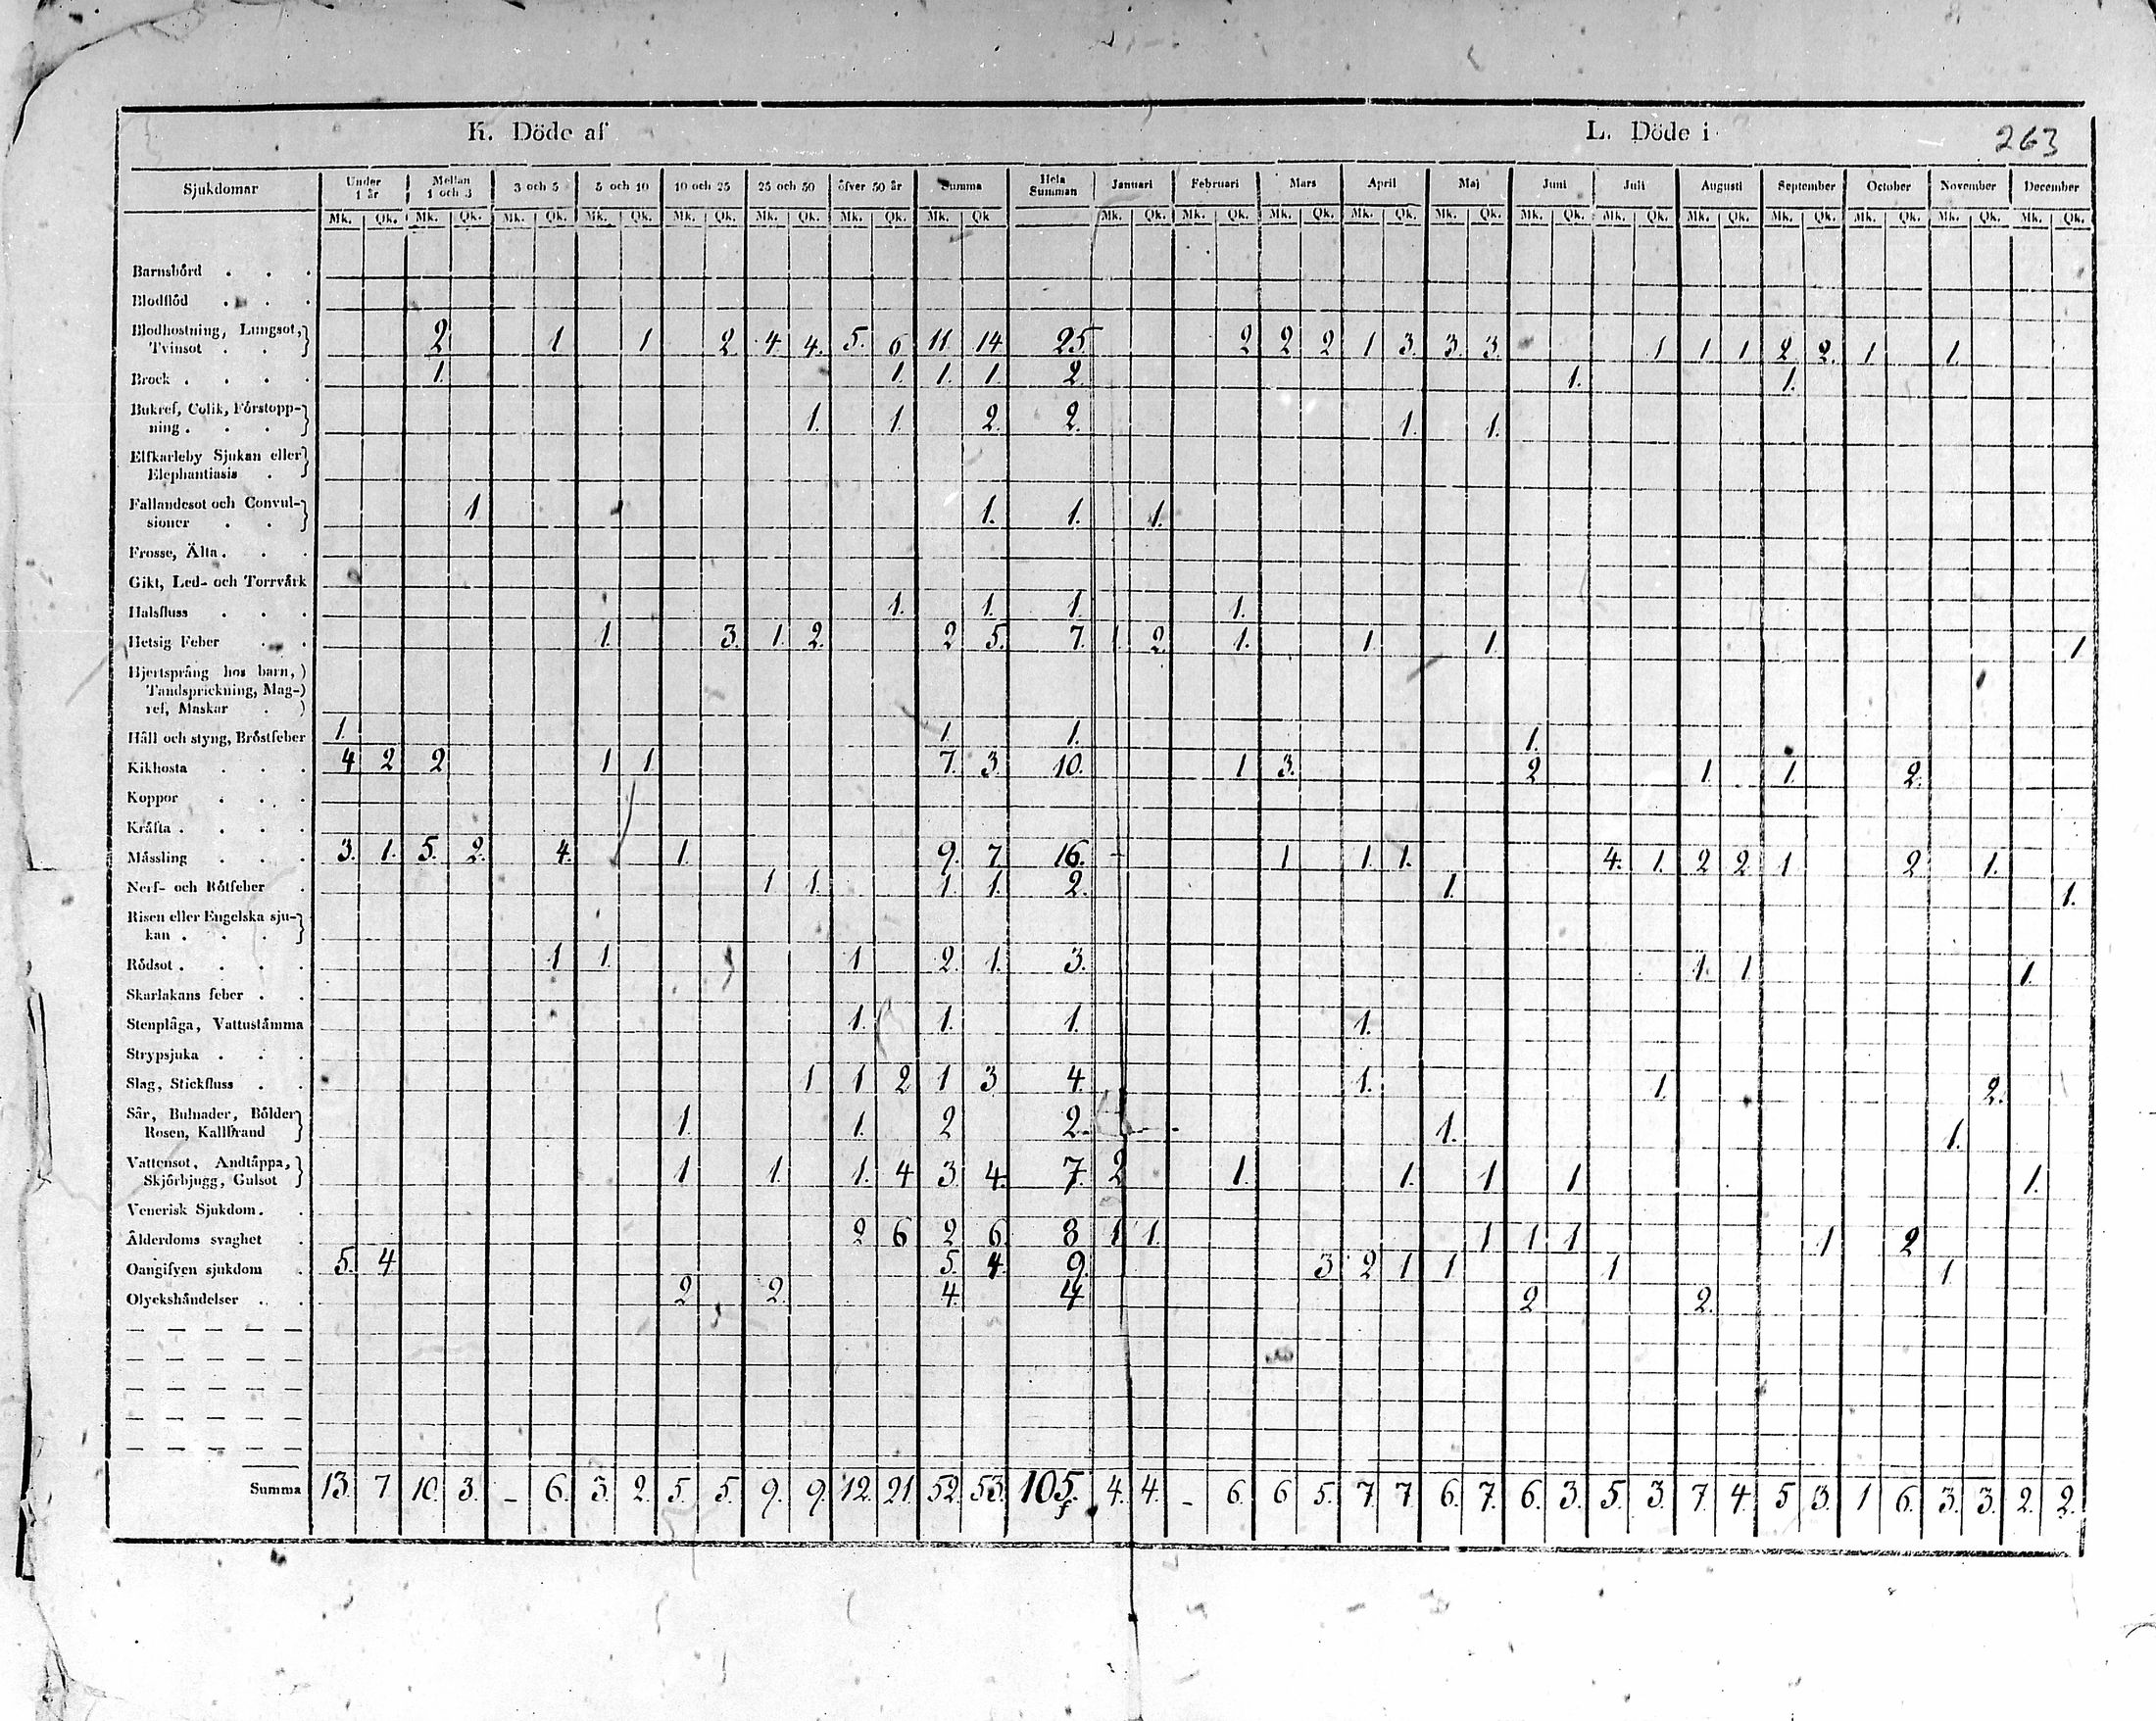 K. Döde af L. Döde i 263
Sjukdomar Under 1 år Mellan 1 och 3 3 och 5 5 och 10 10 och 25 25 och 50 öfver 50 år Summa Hela Summan Januari Februari Mars April Maj Juni Juli Augusti September October November December
Mk. Qk. Mk. Qk. Mk. Qk. Mk. Qk. Mk. Qk. Mk. Qk. Mk. Qk. Mk. Qk Mk. Qk. Mk. Qk. Mk. Qk. Mk. Qk. Mk. Qk. Mk. Qk. Mk. Qk. Mk. Qk. Mk. Qk. Mk. Qk. Mk. Qk. Mk. Qk.
Barnsbörd . . .
Blodflöd . . .
Blodhostning, Lungsot,
Tvinsot . . 2 1 1 2 4 4. 5. 6 11 14 25. 2 2 2 1 3. 3. 3. 1 1 1 2 2. 1 1.
Brock . . . . 1. 1. 1. 1. 2. 1. 1.
Bukref, Colik, Förstopp-
ning . . . 1. 1. 2. 2. 1. 1.
Elfkarleby Sjukan eller
Elephantiasis .
Fallandesot och Convul-
sioner . . 1 1. 1. 1.
Frosse, Älta . . .
Gikt, Led- och Torrvärk
Halsfluss . . . 1. 1. 1. 1.
Hetsig Feber . . 1. 3. 1. 2. 2 5. 7. 1. 2. 1. 1. 1. 1
Hjertsprång hos barn,
Tandsprickning, Mag-
ref, Maskar .
Håll och styng, Bröstfeber 1. 1. 1. 1.
Kikhosta . . . 4 2 2 1 1 7. 3. 10. 1 3. 2 1. 1. 2.
Koppor . . .
Kräfta . . . .
Mässling . . . 3. 1. 5. 2. 4. 1. 9. 7 16. 1 1. 1. 4. 1. 2 2 1 2 1.
Nerf- och Rötfeber . 1 1. 1 1. 2. 1. 1.
Risen eller Engelska sju-
kan . . .
Rödsot . . . . 1 1. 1 2. 1. 3. 1. 1 1.
Skarlakans feber . .
Stenplåga, Vattustämma 1. 1. 1. 1.
Strypsjuka . . .
Slag, Stickfluss . . 1 1 2 1 3 4. 1. 1. 2.
Sår, Bulnader, Bölder
Rosen, Kallbrand 1. 1. 2 2. 1. 1.
Vattensot, Andtäppa,
Skjörbjugg, Gulsot 1 1. 1. 4 3. 4. 7. 2 1. 1. 1 1 1.
Venerisk Sjukdom . .
Ålderdoms svaghet . 2 6 2 6. 8 1 1. 1 1 1 1 2
Oangifven sjukdom . 5. 4 5. 4. 9. 3 2 1 1 1 1
Olyckshändelser . . 2 2. 4. 4 2 2.
— — — — — —
— — — — — —
— — — — — —
— — — — — —
— — — — — —
Summa 13. 7 10. 3. - 6. 3. 2. 5. 5. 9. 9. 12. 21. 52. 53. 105. 4. 4. - 6. 6 5. 7. 7. 6. 7. 6. 3. 5. 3. 7. 4. 5 3. 1 6. 3. 3. 2. 2.